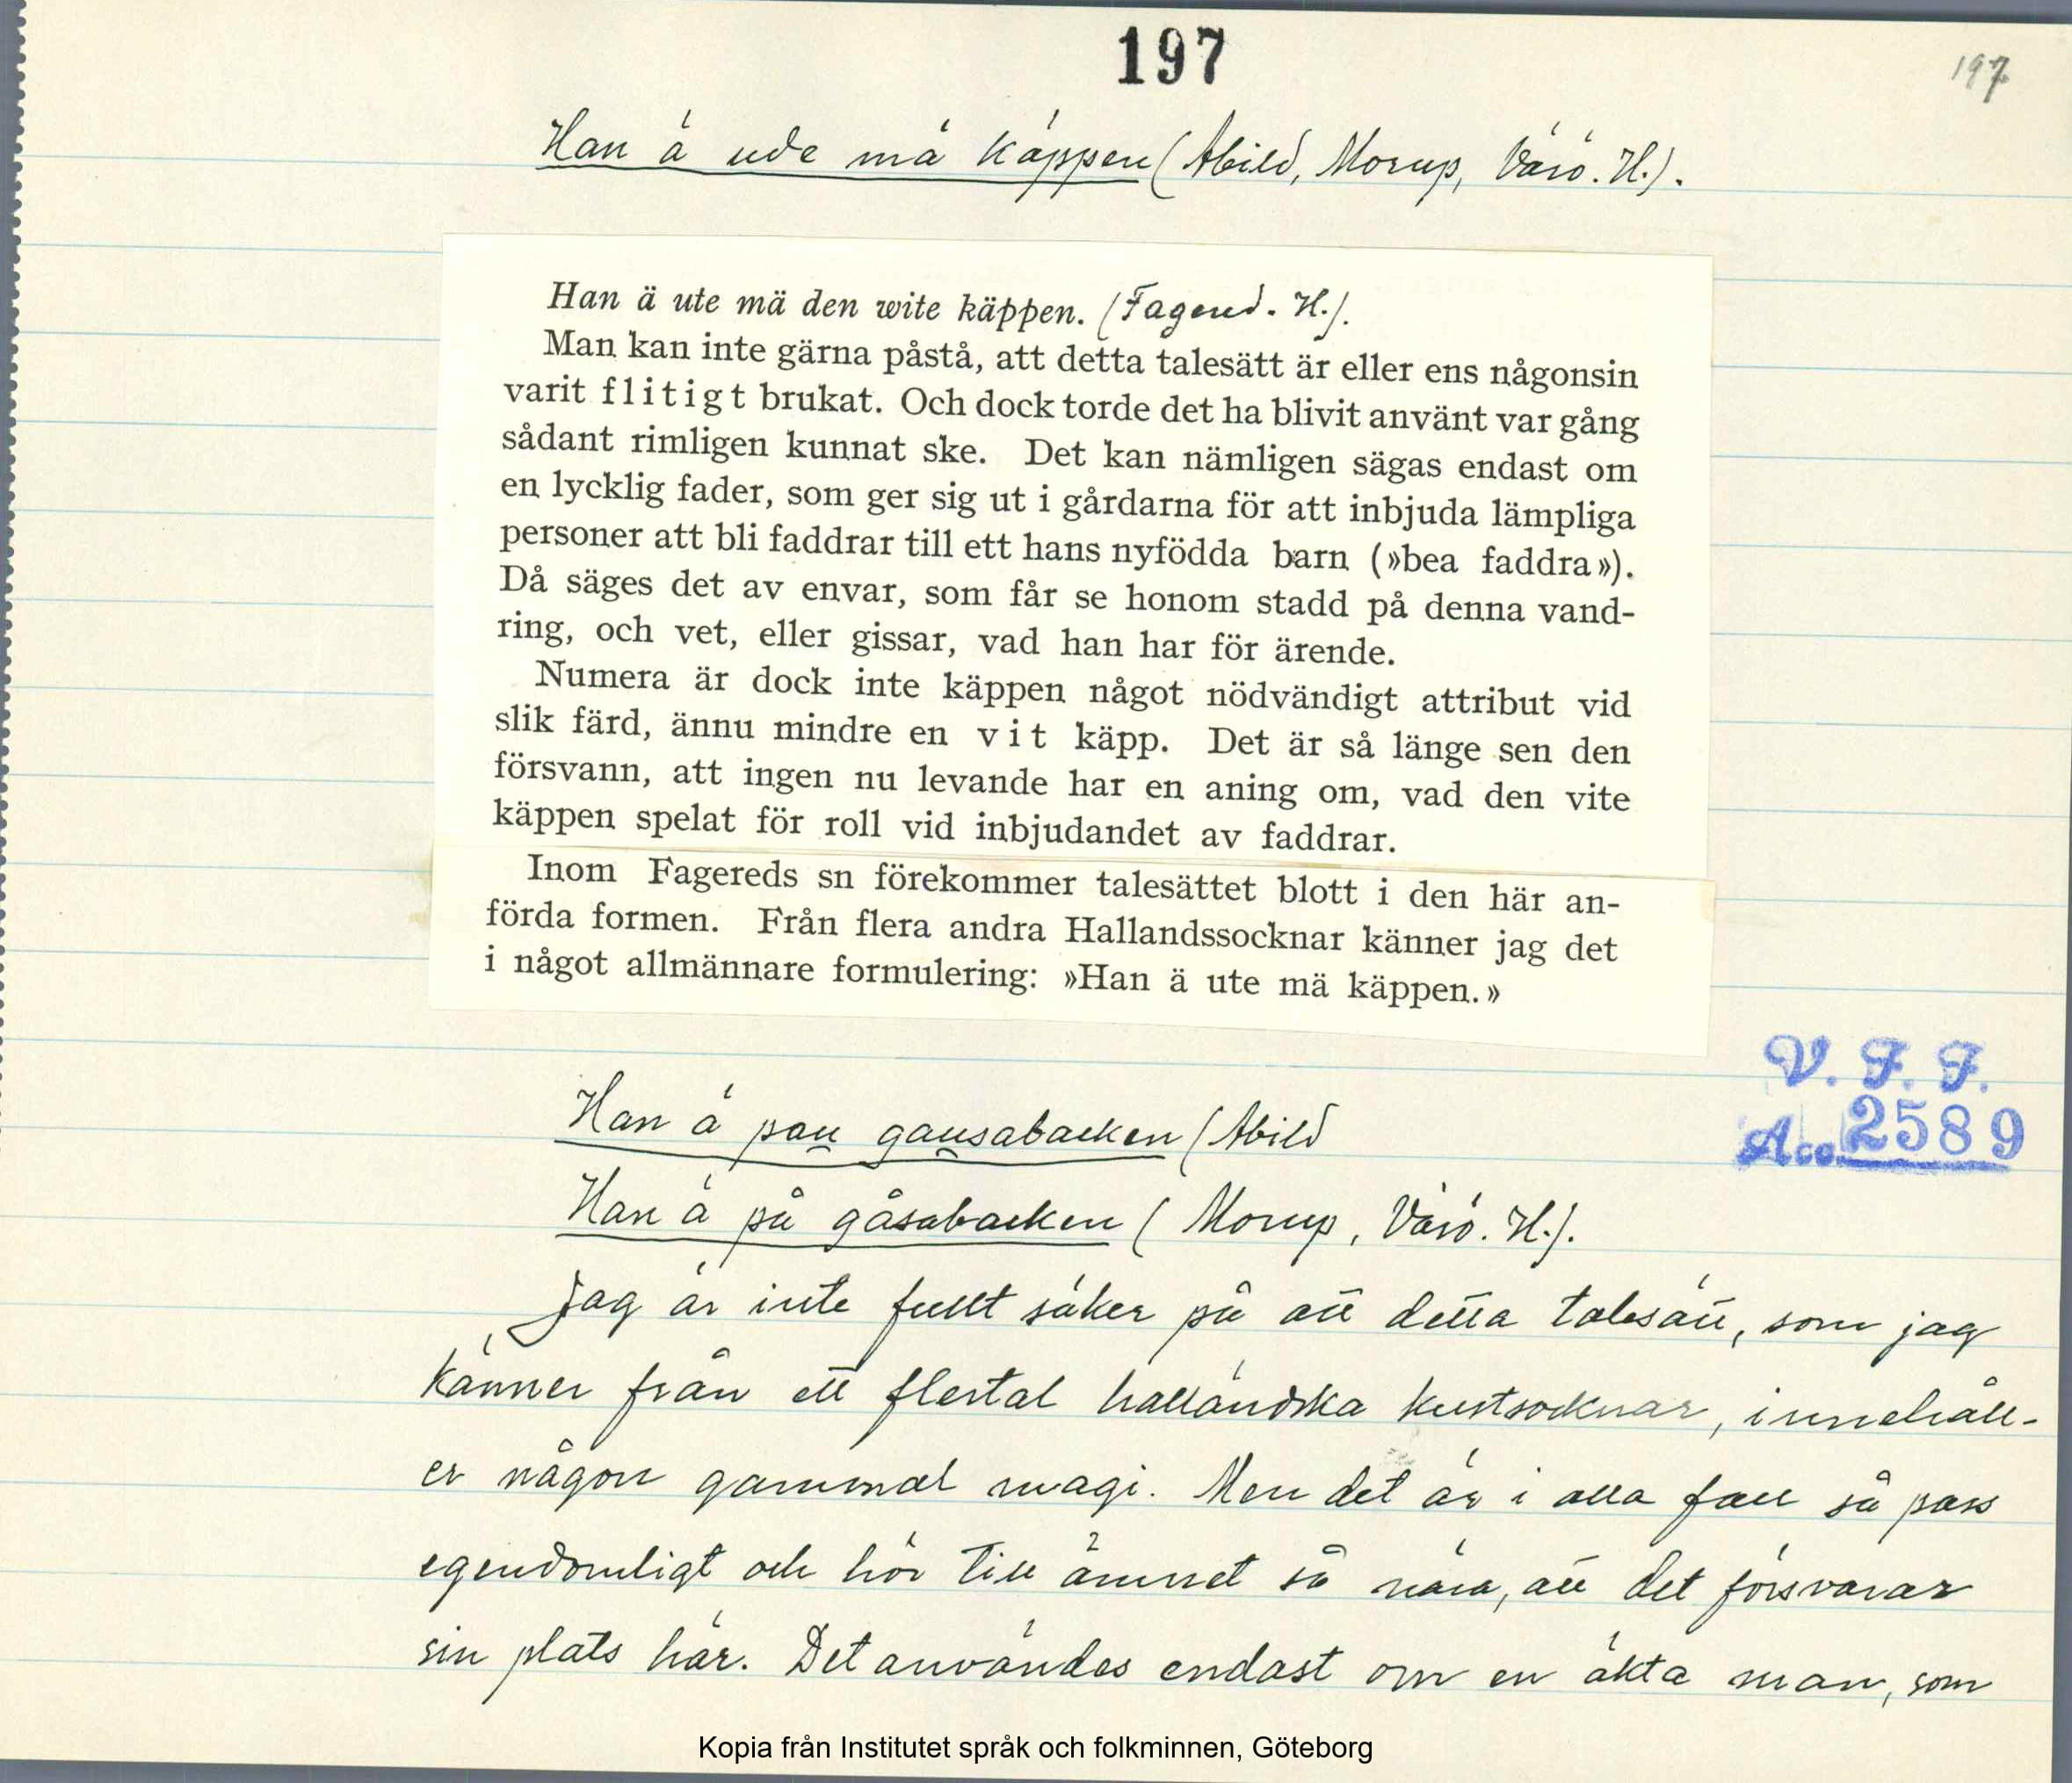 197
197
Han ä ude mä käppen (Abild, Morup, Värö. H.).
Han ä ute mä den wite käppen. (Fagered. H.).
Man kan inte gärna påstå, att detta talesätt är eller ens någonsin
varit flitigt brukat. Och dock torde det ha blivit använt var gång
sådant rimligen kunnat ske. Det kan nämligen sägas endast om
en lycklig fader, som ger sig ut i gårdarna för att inbjuda lämpliga
personer att bli faddrar till ett hans nyfödda barn (»bea faddra»).
Då säges det av envar, som får se honom stadd på denna vand-
ring, och vet, eller gissar, vad han har för ärende.
Numera är dock inte käppen något nödvändigt attribut vid
slik färd, ännu mindre en vit käpp. Det är så länge sen den
försvann, att ingen nu levande har en aning om, vad den vite
käppen spelat för roll vid inbjudandet av faddrar.
Inom Fagereds sn förekommer talesättet blott i den här an-
förda formen. Från flera andra Hallandssocknar känner jag det
i något allmännare formulering: »Han ä ute mä käppen.»
V. F. F.
Acc. 2589
Han ä pau gausabacken (Abild
Han ä på gåsabacken (Morup, Värö. H.).
Jag är inte fullt säker på att detta talesätt, som jag
känner från ett flertal halländska kustsocknar, innehåll-
er någon gammal magi. Men det är i alla fall så pass
egendomligt och hör till ämnet så nära, att det försvarar
sin plats här. Det användes endast om en äkta man, som
Kopia från Institutet språk och folkminnen, Göteborg